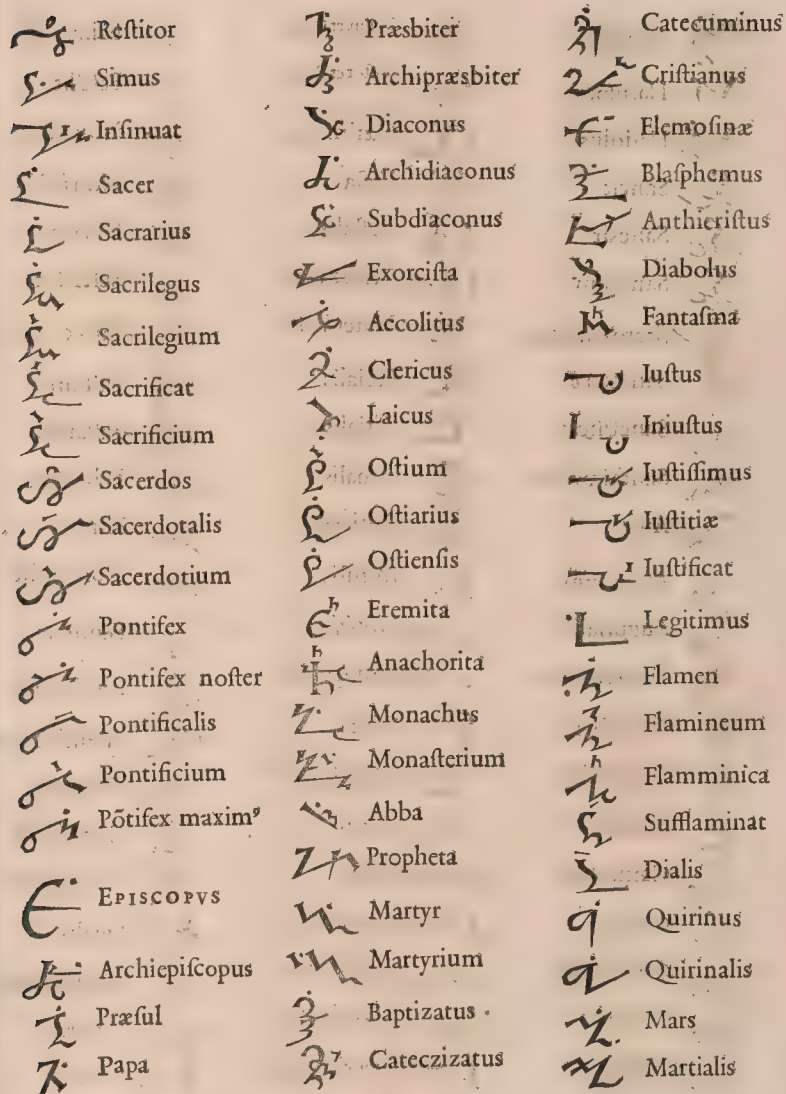 Reſtitor
Simus
Inſinuat
Sacer
Sacrarius
Sacrilegus
Sacrilegium
Sacrificat
Sacrificium
Sacerdos
Sacerdotalis
Sacerdotium
Pontifex
Pontifex noſter
Pontificalis
Pontificium
Põtifex maximꝰ
EPISCOPVS
Archiepiſcopus
Præſul
Papa
Præsbiter
Archipræsbiter
Diaconus
Archidiaconus
Subdiaconus
Exorciſta
Accolitus
Clericus
Laicus
Oſtium
Oſtiarius
Oſtienſis
Eremita
Anachorita
Monachus
Monaſterium
Abba
Propheta
Martyr
Martyrium
Baptizatus
Cateczizatus
Catecuminus
Criſtianus
Elemoſinæ
Blaſphemus
Anthicriſtus
Diabolus
Fantaſma
Iuſtus
Iniuſtus
Iuſtiſſimus
Iuſtitiæ
Iuſtificat
Legitimus
Flamen
Flamineum
Flamminica
Sufflaminat
Dialis
Quirinus
Quirinalis
Mars
Martialis